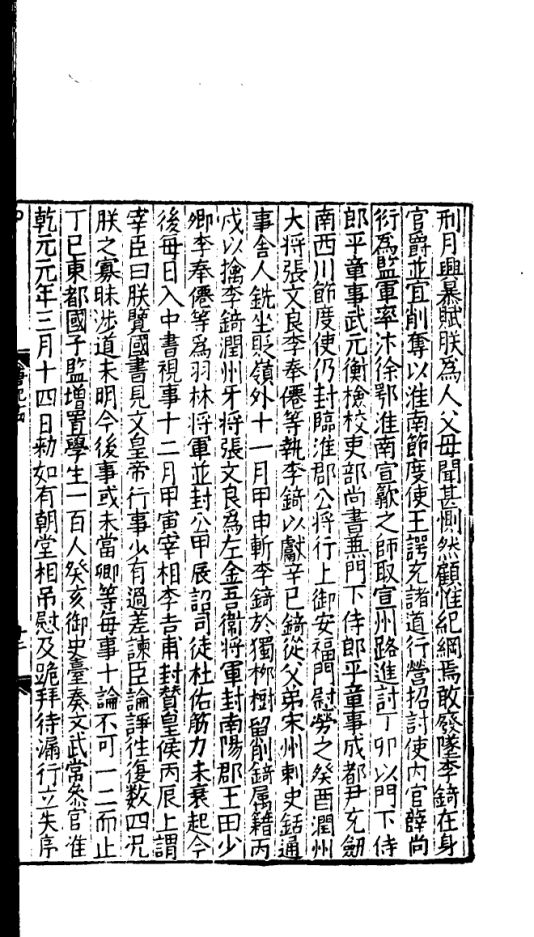 刑月興暴賦朕為人父母聞甚惻然顧惟紀綱焉敢廢墜李錡在身
官爵並宜削奪以淮南節度使王諤充諸道行營招討使內官薛尚
衍為監軍率汴徐鄂淮南宣歙之師取宣州路進討丁卯以門下侍
郎平章事武元衡檢校吏部尚書兼門下侍郎平章事成都尹充劒
南西川節度使仍封臨淮郡公將行上御安福門慰勞之癸酉潤州
大將張文良李奉僊等執李錡以獻辛巳錡從父弟宋州刺史銛通
事舍人銑坐貶嶺外十一月甲申斬李錡於獨柳樹留削錡属籍丙
戌以擒李錡潤州牙將張文良為左金吾衛將軍封南陽郡王田少
卿李奉僊等為羽林將軍並封公甲辰詔司徒杜佑筋力未衰起今
後每日入中書視事十二月甲寅宰相李吉甫封贊皇侯丙辰上謂
宰臣曰朕覽國書見文皇帝行事少有過差諫臣論諍往復数四况
朕之寡昧涉道未明今後事或未當卿等每事十論不可一二而止
丁巳東都國子監增置學生一百人癸亥御史臺奏文武常叅官准
乾元元年三月十四日勑如有朝堂相吊慰及跪拜待漏行立失序